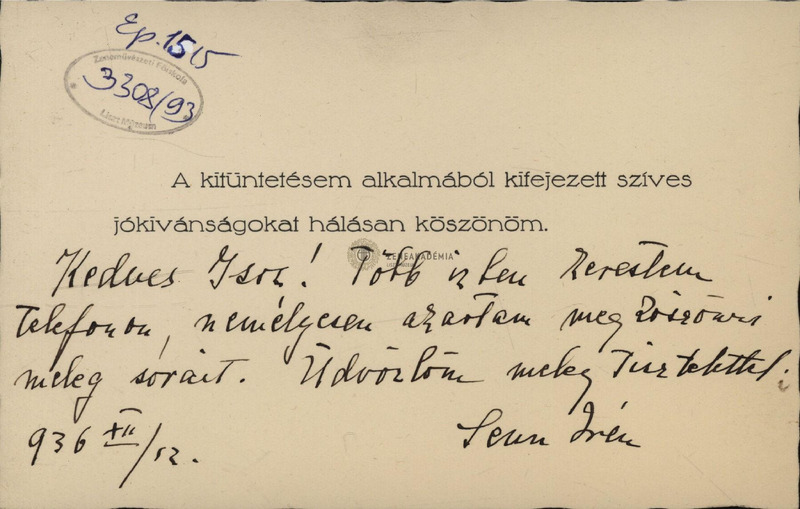 Ep. 1515
Zeneművészeti Főiskola
3308/93
Liszt Múzeum
A kitüntetésem alkalmából kifejezett szíves
jókivánságokat hálásan köszönöm.
ZENEAKADÉMIA
Kedves Isoz! Több izben kerestem
telefonon, személyesen akartam megköszönni
meleg sorait. Üdvözlöm meleg tisztelettel.
936 XII/12.
Senn Irén